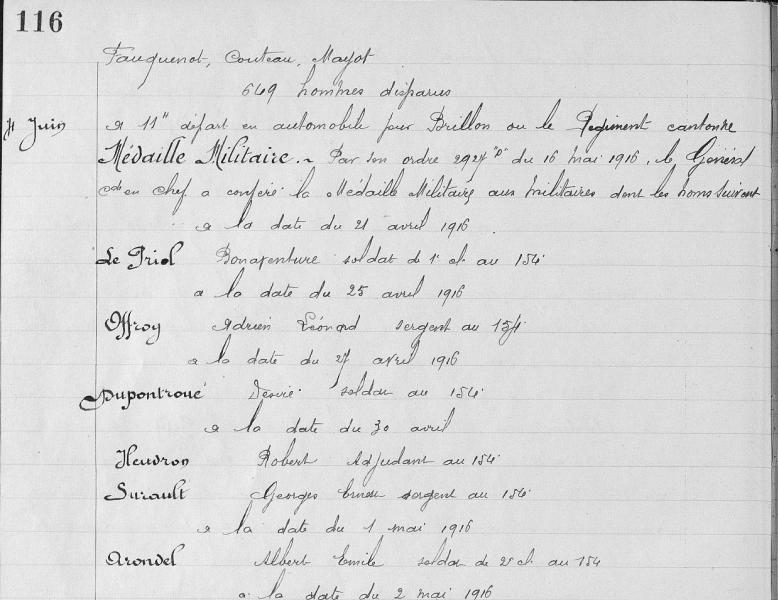 116
Fauquenot, Couteau, Mayot
649 hommes disparus
Juin à 11h départ en automobile pour Brillon ou le Régiment cantonne
Médaille Militaire. ~ Par son ordre 2927 "D" du 16 mai 1916, le Général
Cdt en Chef a conféré la Médaille Militaire aux militaires dont les noms suivent
à la date du 21 avril 1916
Le Priol Bonaventure soldat de 1e cl. au 154e
à la date du 25 avril 1916
Offroy Adrien Léonard sergent au 154e
à la date du 27 avril 1916
Dupontroué Désiré soldat au 154e
à la date du 30 avril
Heudron Robert Adjudant au 154e
Surault Georges Ernest sergent au 154e
à la date du 1 mai 1916
Arondel Albert Emile soldat de 2e cl. au 154
à la date du 2 mai 1916